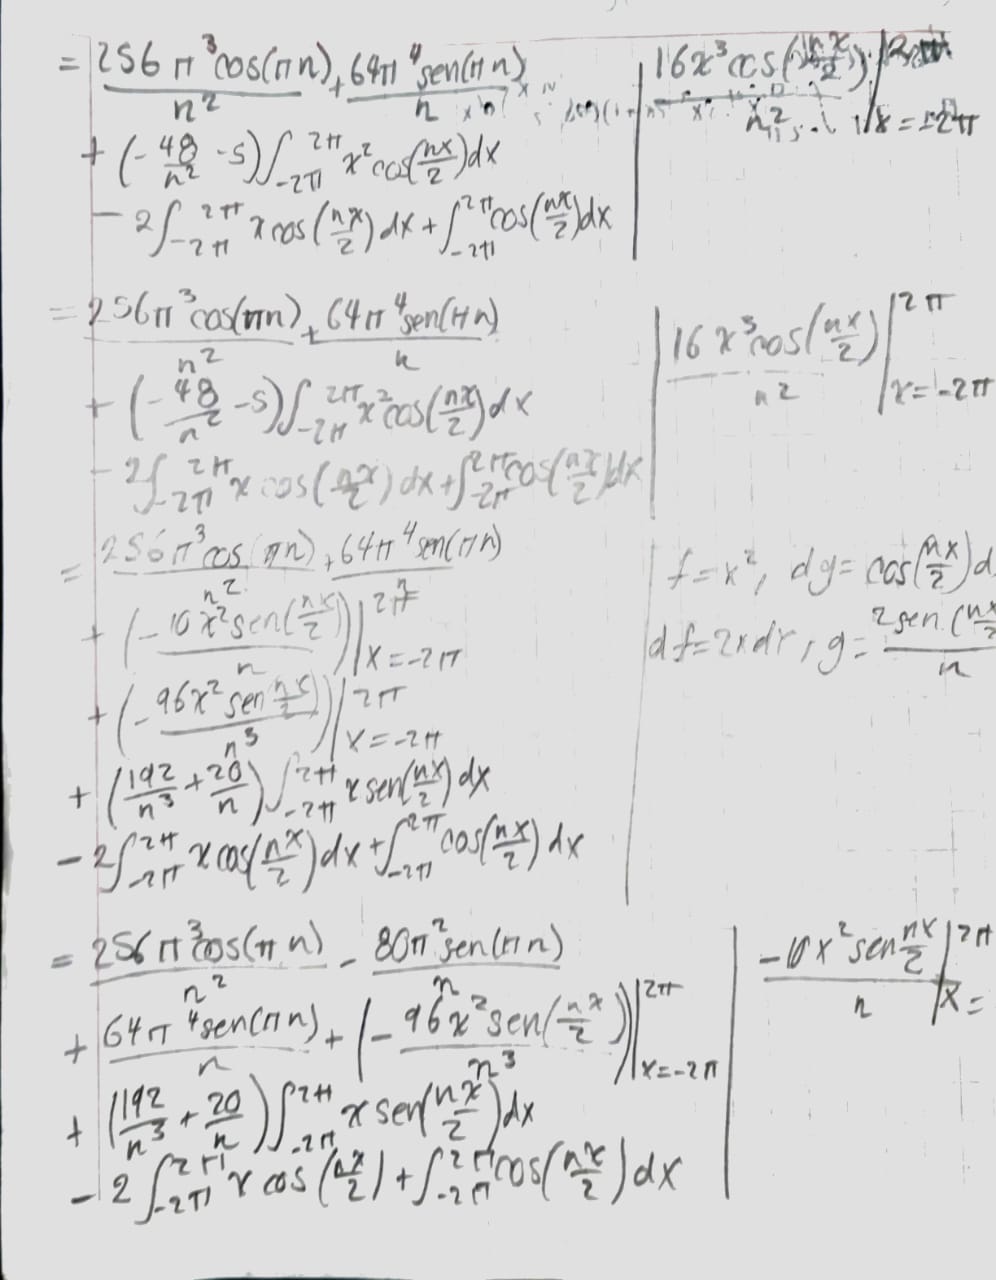 = 256π³cos(πn)/n² + 64π⁴sen(πn)/n
+ (-48/n² -5)∫_{-2π}^{2π} x²cos(nx/2)dx
- 2∫_{-2π}^{2π} x cos(nx/2)dx + ∫_{-2π}^{2π} cos(nx/2)dx
16x³cos(nx/2)/n² | x=-2π
= 256π³cos(πn)/n² + 64π⁴sen(πn)/n
+ (-48/n² -5)∫_{-2π}^{2π} x²cos(nx/2)dx
- 2∫_{-2π}^{2π} x cos(nx/2)dx + ∫_{-2π}^{2π} cos(nx/2)dx
16x³cos(nx/2)/n² |_{x=-2π}^{2π}
= 256π³cos(πn)/n² + 64π⁴sen(πn)/n
+ (-10x²sen(nx/2)/n)|_{x=-2π}^{2π}
+ (-96x²sen nx/2)/n³)|_{x=-2π}^{2π}
+ (192/n³ + 20/n)∫_{-2π}^{2π} x sen(nx/2)dx
- 2∫_{-2π}^{2π} x cos(nx/2)dx + ∫_{-2π}^{2π} cos(nx/2)dx
f=x², dg=cos(nx/2)d
df=2xdx, g=2sen(nx/2/n
= 256π³cos(πn)/n² - 80π²sen(πn)/n
+ 64π⁴sen(πn)/n + (-96x²sen(nx/2)/n³)|_{x=-2π}^{2π}
+ (192/n³ + 20/n)∫_{-2π}^{2π} x sen(nx/2)dx
- 2∫_{-2π}^{2π} x cos(nx/2) + ∫_{-2π}^{2π} cos(nx/2)dx
-10x²sen nx/2/n |_{x=}^{2π}